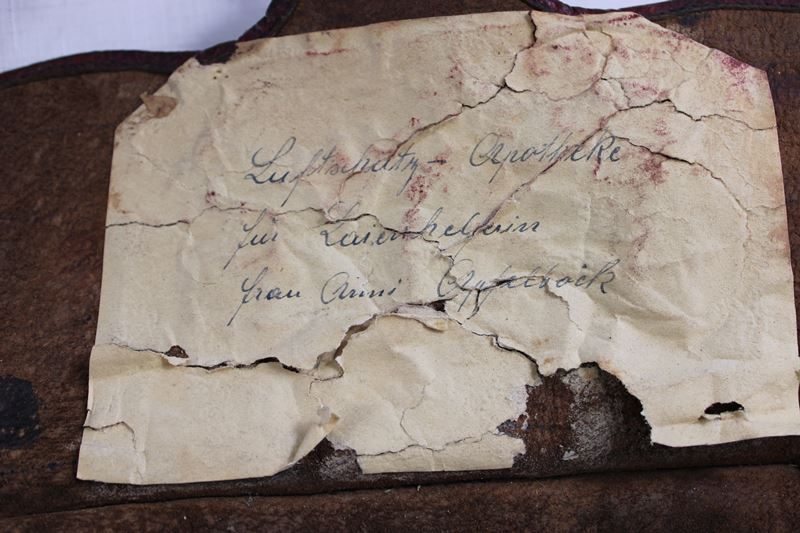 Luftschutz - Apotheke
für Laienhelferin
frau Anni Apfelböck